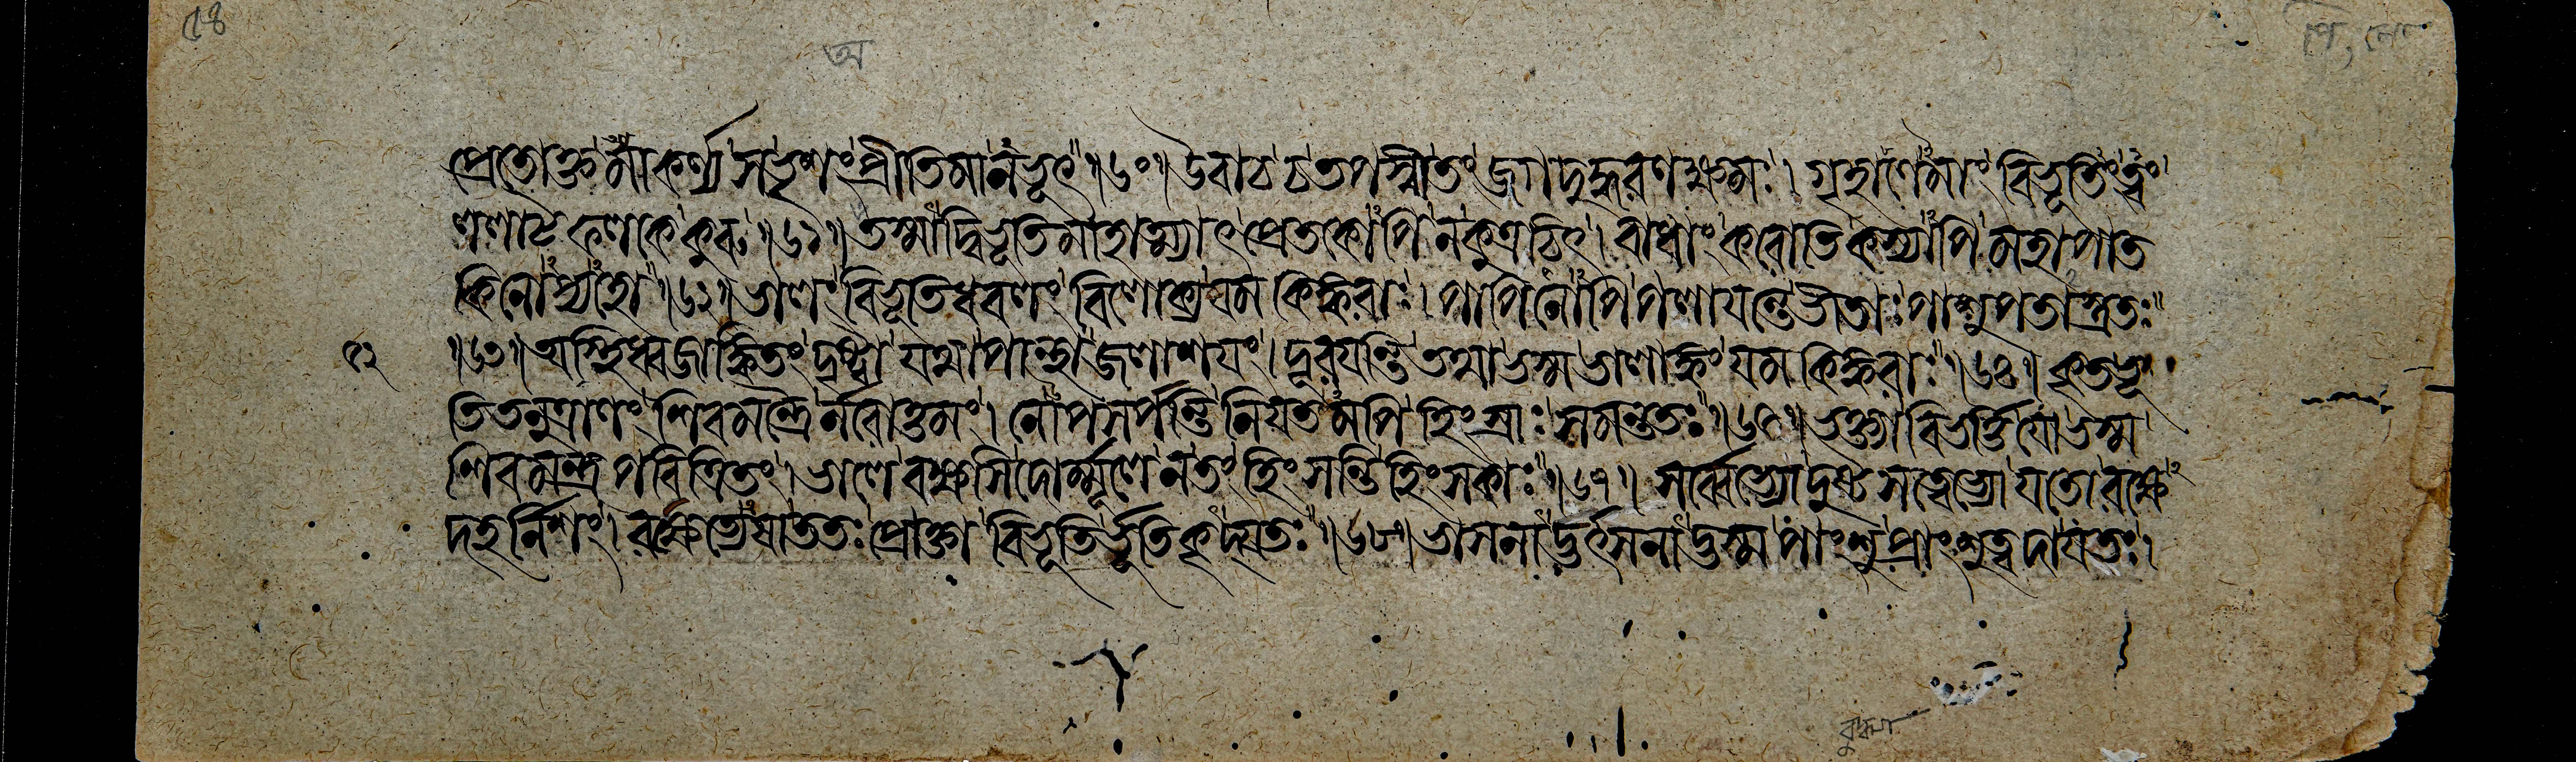 ৫৪
অ
প্রেতোক্তমাকর্ণ্য সভৃশং প্রীতিমানভূৎ ॥৬০॥ উবাচ চ তপস্বী তং জগদুদ্ধরণক্ষমঃ। গৃহাণেমাং বিভূতিং ত্বং
ললাটফলকে কুরু ॥৬১॥ তস্মাদ্বিভূতিমাহাত্ম্যাৎ প্রেতকোপি ন কুত্রচিৎ। বাধাং করোতি কস্যাপি মহাপাত
কিনোপ্যহো ॥৬২॥ ভালং বিভূতিধবলং বিলোক্য যমকিঙ্করাঃ। পাপিনোপি পলায়ন্তে ভীতাঃ পাশুপতাস্ত্রতঃ
৫২ ॥৬৩॥ অস্থিধ্বজাঙ্কিতং দৃষ্ট্বা যথা পান্থো জলাশয়ং। দূরয়ন্তি তথা ভস্মভালাঙ্কং যমকিঙ্করাঃ ॥৬৪॥ কৃতভূ
তিতনুত্রাণং শিবমন্ত্রৈর্নরোত্তমং। নোপসর্পন্তি নিয়তমপি হিংস্রাঃ সমন্ততঃ ॥৬৫॥ ভক্ত্যা বিভর্ত্তি যো ভস্ম
শিবমন্ত্রপবিত্রিতং। ভালে বক্ষসি দোর্ম্মূলে ন তং হিংসন্তি হিংসকাঃ ॥৬৭॥ সর্ব্বেভ্যো দুষ্টসত্ত্বেভ্যো যতো রক্ষে
দহর্নিশং। রক্ষেত্যেষা ততঃ প্রোক্তা বিভূতির্ভূতিকৃদ্যতঃ ॥৬৮॥ ভাসনাদ্ভর্ৎসনাদ্ভস্ম পাংশু প্রাংশুত্বদায়তঃ।